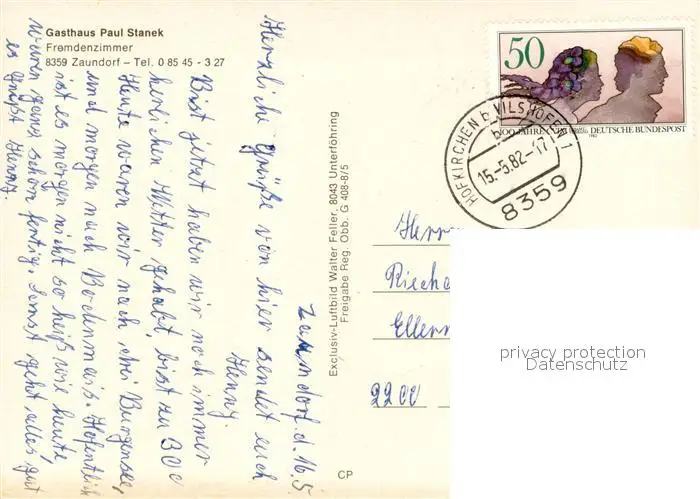 Gasthaus Paul Stanek
Fremdenzimmer
8359 Zaundorf – Tel. 0 85 45 - 3 27
Zaundorf. d. 16.5
Herzliche Grüße von hier sendet euch
Henny.
Bist jetzt haben wir noch immer
herlichen Wetter gehabt, bist zu 30C
Heute waren wir nach, drei Burgensee,
und morgen nach Bodenmais. Hofentlich
ist es morgen nicht so heiß wie heute,
waren ganz schön fertig. Sonst geht alles gut
es grüßt Henny.
Exclusiv-Luftbild Walter Feller, 8043 Unterföhring
Freigabe Reg. Obb. G 408-8/5
CP
50
100 JAHRE DEUTSCHE BUNDESPOST
1982
HOFKIRCHEN b VILSHOFEN 1
b
15.-5.82-17
8359
Herr
Riech
Ellern
2200
privacy protection
Datenschutz